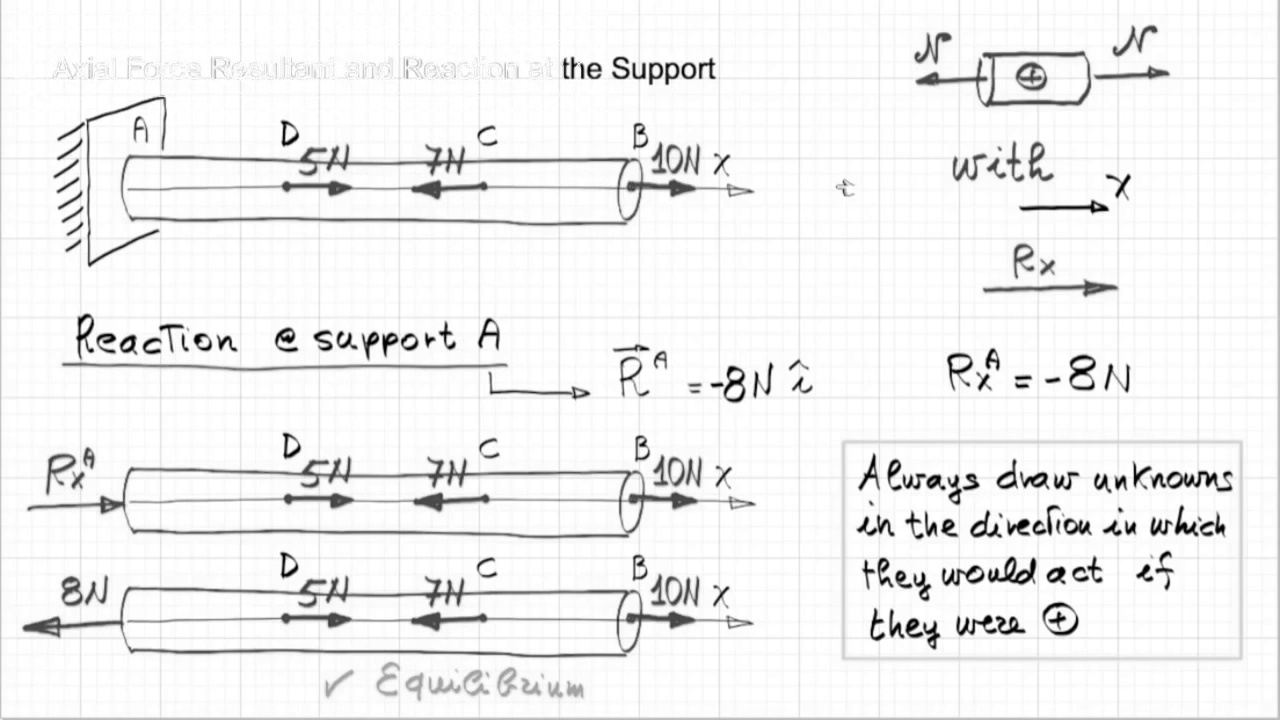 Axial Force Resultant and Reaction at the Support
N N
A D 5N 7N C B 10N x
with
x
Rx
Reaction @ support A
R⃗ᴬ = -8N î
Rxᴬ = -8N
Rxᴬ D 5N 7N C B 10N x
8N D 5N 7N C B 10N x
✓ Equilibrium
Always draw unknowns
in the direction in which
they would act if
they were ⊕